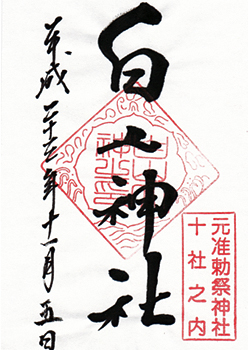 元准勅祭神社
十社之内
白山神社
平成二十三年十一月五日